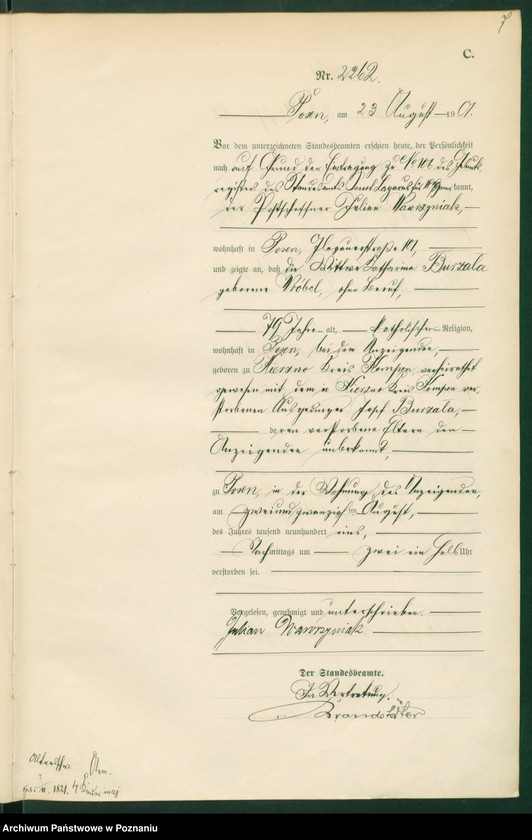 C.
Nr. 2262.
Posen, am 23 August 1901.
Vor dem unterzeichneten Standesbeamten erschien heute, der Persönlichkeit
nach auf Grund der Eintragung zu des Geburts
registers des Standesamts Sankt Lazarus kannt,
der Postschaffner Julian Wawrzyniak,
wohnhaft in Posen,
und zeigte an, daß die Wittwe Katharina Burzala
geborene Wróbel, ohne Beruf,
79 Jahre alt, katholischer Religion,
wohnhaft in Posen, bei dem Anzeigenden,
geboren zu Kierzno Kreis Kempen, verheirathet
gewesen mit dem in Kierzno Kreis Kempen ver-
storbenen Ausgedinger Josef Burzala,
deren verstorbene Eltern dem
Anzeigenden unbekannt,
zu Posen, in der Wohnung des Anzeigenden,
am zweiundzwanzigsten August,
des Jahres tausend neunhundert eins,
Nachmittags um zwei ein halb Uhr
verstorben sei.
Vorgelesen, genehmigt und unterschrieben.
Julian Wawrzyniak
Der Standesbeamte.
In Vertretung.
Brandstädter
1821. 4 Kinder maj
Archiwum Państwowe w Poznaniu